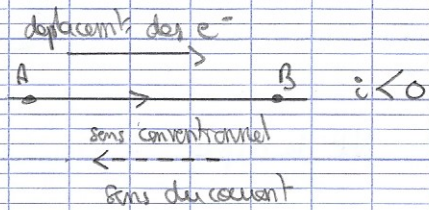 deplacemt des e⁻
A B i < 0
sens conventionnel
sens du courant